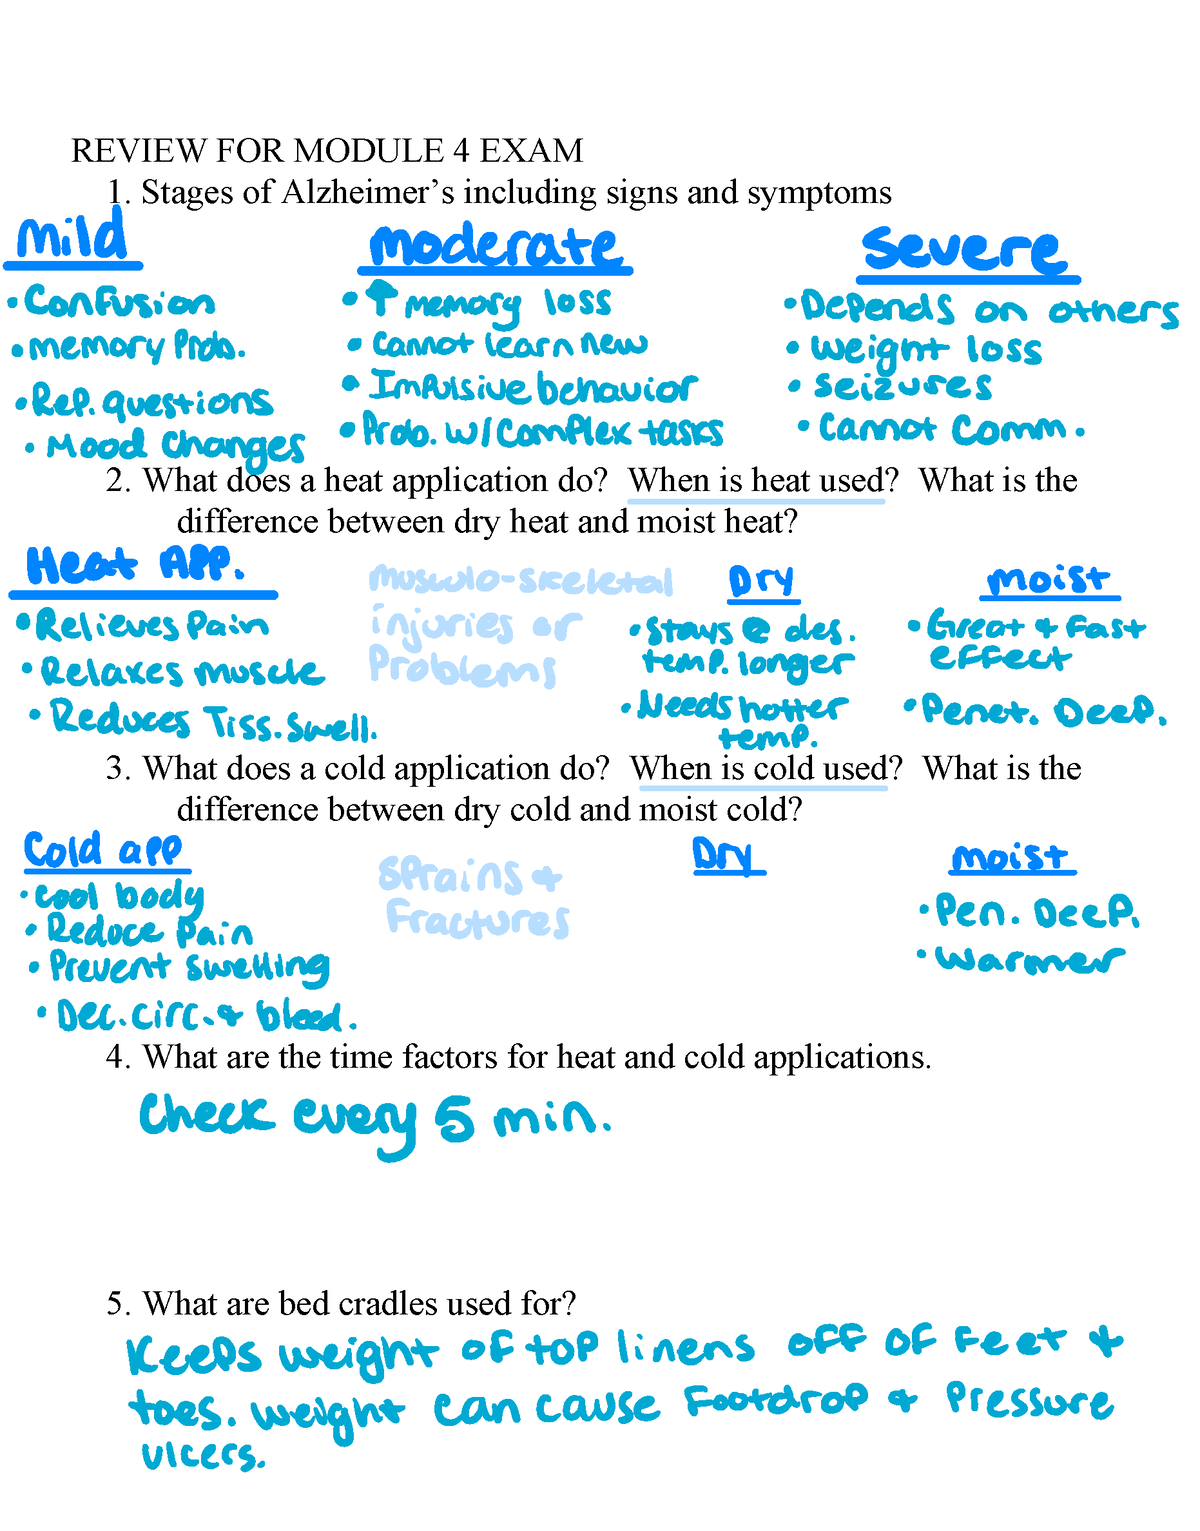 REVIEW FOR MODULE 4 EXAM
1. Stages of Alzheimer's including signs and symptoms
Mild
• Confusion
• memory Prob.
• Rep. questions
• Mood Changes
Moderate
• ↑ memory loss
• Cannot learn new
• Impulsive behavior
• Prob. w/ Complex tasks
Severe
• Depends on others
• weight loss
• seizures
• Cannot Comm.
2. What does a heat application do? When is heat used? What is the
difference between dry heat and moist heat?
Heat APP.
• Relieves Pain
• Relaxes muscle
• Reduces Tiss. Swell.
musculo-skeletal
injuries or
Problems
Dry
• Stays @ des.
temp. longer
• Needs hotter
temp.
moist
• Great & Fast
effect
• Penet. Deep.
3. What does a cold application do? When is cold used? What is the
difference between dry cold and moist cold?
Cold app
• Cool body
• Reduce Pain
• Prevent swelling
• Dec. circ. & bleed.
Sprains &
Fractures
Dry
moist
• Pen. Deep.
• Warmer
4. What are the time factors for heat and cold applications.
Check every 5 min.
5. What are bed cradles used for?
Keeps weight of top linens off of Feet &
toes. weight can cause Footdrop & Pressure
ulcers.